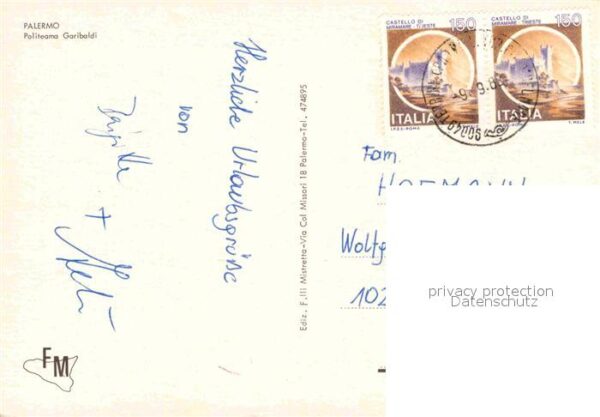 PALERMO
Politeama Garibaldi
Herzliche Urlaubsgrüße
von
Brigitte
+
Ediz. F.lli Mistretta-Via Col Missori 18 Palermo-Tel. 474895
FM
CASTELLO DI
MIRAMARE - TRIESTE 150
ITALIA
I.P.Z.S.-ROMA
CASTELLO DI
MIRAMARE - TRIESTE 150
ITALIA
Fam.
HOFMANN
Wolfg
102
privacy protection
Datenschutz